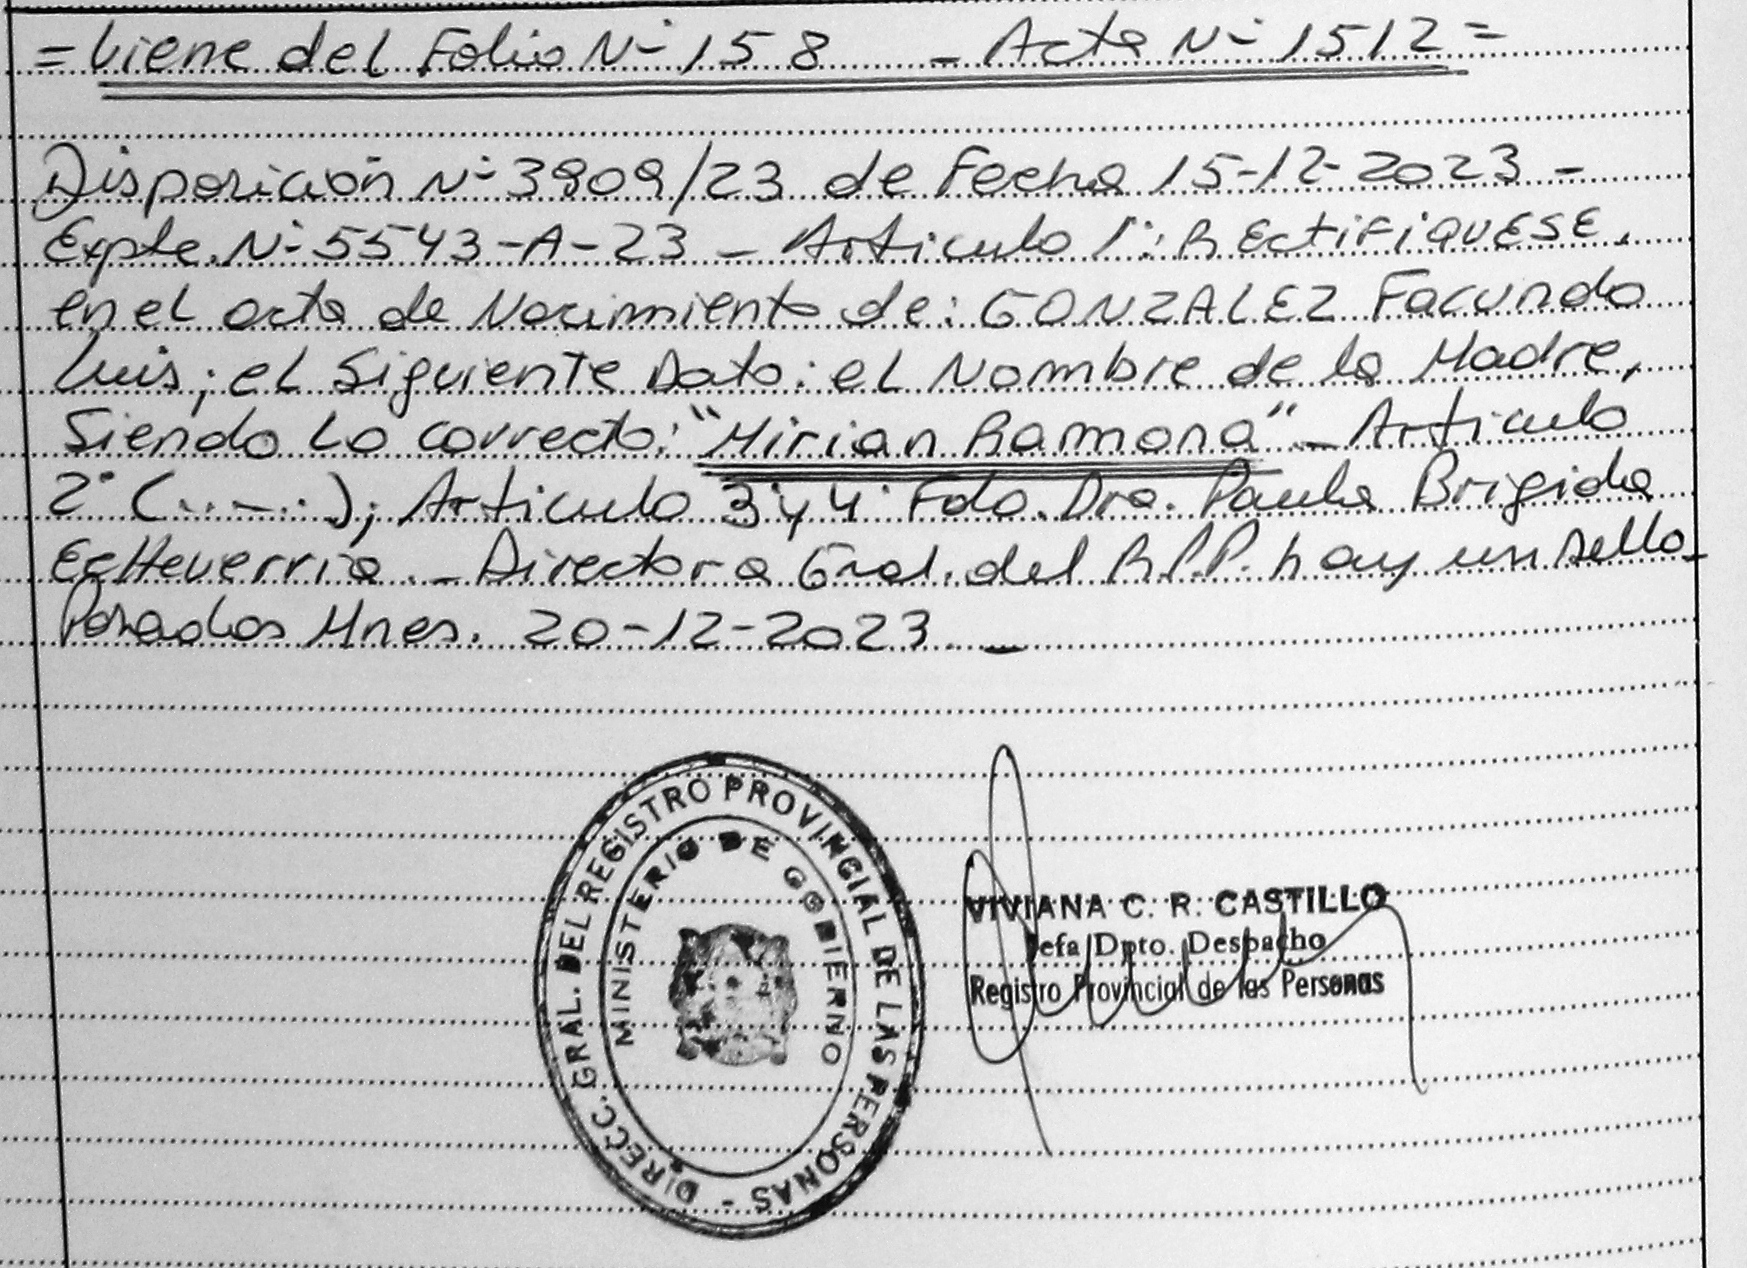 = Viene del Folio N° 158 - Acta N° 1512 =
Disposición N° 3909/23 de Fecha 15-12-2023 -
Expte. N° 5543-A-23 - Articulo 1°: RECTIFIQUESE,
en el acta de Nacimiento de: GONZALEZ Facundo
Luis; el Siguiente Dato: el Nombre de la Madre,
Siendo Lo correcto: "Mirian Ramona" - Articulo
2° (......); Articulo 3° y 4° Fdo. Dra. Paula Brigida
Echeverria. - Directora Gral. del R.P.P. hay un sello -
Posadas Mnes. 20-12-2023. -
DIRECC. GRAL. DEL REGISTRO PROVINCIAL DE LAS PERSONAS -
MINISTERIO DE GOBIERNO
VIVIANA C. R. CASTILLO
Jefa Dpto. Despacho
Registro Provincial de las Personas